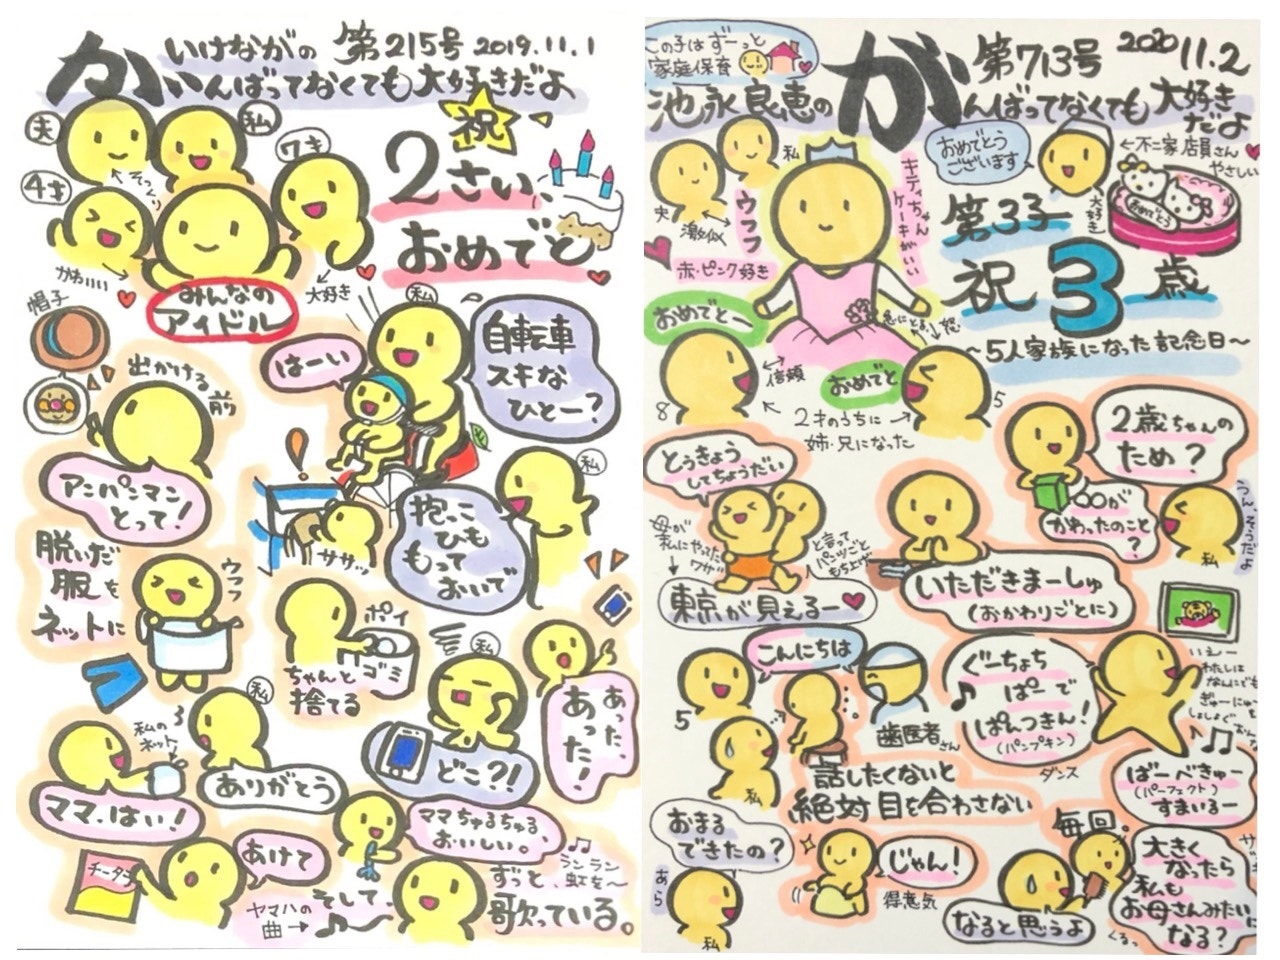 いけながの
第215号 2019.11.1
がんばってなくても大好きだよ
夫
私
4才
ワキ
そっくり
祝
2さい、
おめでと
かわいい
大好き
みんなの
アイドル
帽子
出かける
前
アンパンマン
とって!
はーい
私
自転車
スキな
ひとー?
私
抱っこ
ひも
もって
おいで
ササッ
脱いだ
服を
ネットに
ウフフ
ポイ
ゴミ
ちゃんと
捨てる
私
どこ?!
あった、
あった!
私
私の
ネット
ママ、はい!
ありがとう
チータラ
あけて
ママちゅるちゅる
おいしい。
ヤマハの
曲→
そして、
ランラン
虹を〜
ずっと
歌っている。
この子はずーっと
家庭保育
第713号 2020 11.2
池永良恵の
がんばってなくても大好き
だよ
夫
私
激似
ウフフ
赤・ピンク好き
キティちゃん
ケーキがいい
おめでとう
ございます
←不二家店員さん
やさしい
大好き
おめでとう
第3子
祝3歳
〜5人家族になった記念日〜
おめでとー
おめでと
信頼
8
5
2才のうちに
姉・兄になった
とうきょう
してちょうだい
母が
私にやってた
ワザ
と言って
パンツごと
もち上げ
東京が見えるー
2歳ちゃんの
ため?
○○が
かわったのこと
?
うん、そうだよ
私
いただきまーしゅ
(おかわりごとに)
こんにちは
5
私
歯医者さん
話したくないと
絶対目を合わさない
ぐーちょち
ぱーで
ぱんつきん!
(パンプキン)
ダンス
いえー
わたしは
なんにでも
ばーべきゅー
(パーフェクト)
すまいるー
おまる
できたの?
あら
私
じゃん!
得意気
毎回。
なると思うよ
くるっ
大きく
なったら
私も
お母さんみたいに
なる?